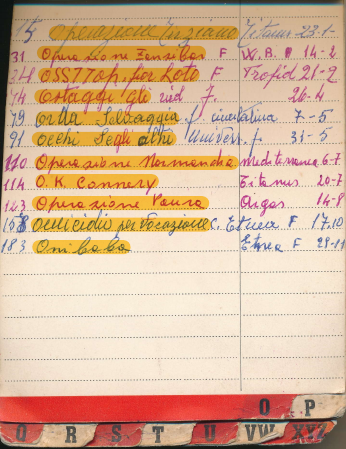 15 Operazione Poziano Titanus 23-1-
31 Operazione Zanzibar F W.B. 14-2
24 OSS77 op. fior Loto F Trofid 21-2
74 Ostaggi gli F. 26-4
79 Orda Selvaggia f cinelatina 7-5
91 Occhi Segli altri Univers. f 31-5
110 Operazione Normandia Mediterranea 6-7
114 O.K. Connery Titanus 20-7
143 Operazione Paura Argos 14-8
Omicidio per vocazione C. Etnea F 17.10
183 Onibaba Etnea F 28-11
O P
Q R S T U VW XYZ